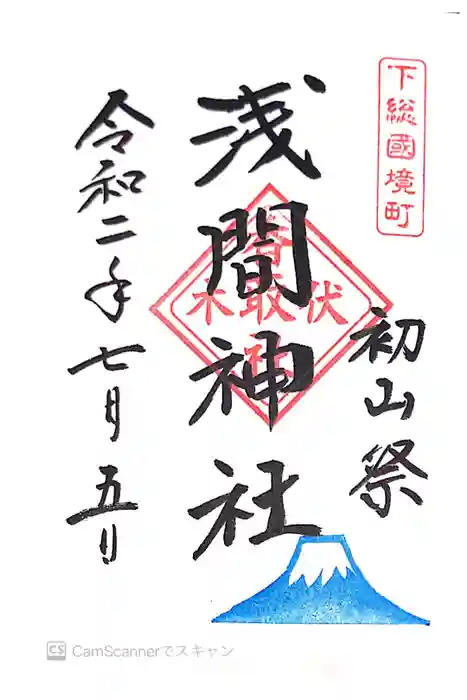 下総國境町
初山祭
浅間神社
伏取木
香取
令和二年七月五日
CS CamScannerでスキャン